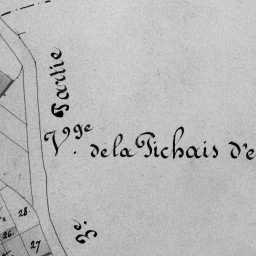 Partie
V.ge de la Pichais d'e
3e.
28.
26.
27